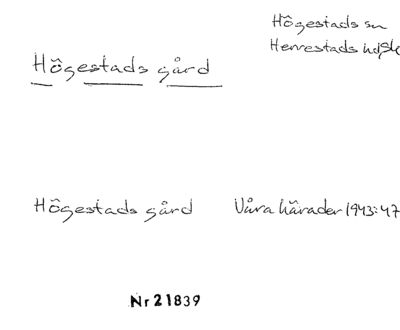 Högestads sn
Herrestads hd, Sk
Högestads gård
Högestads gård Våra härader 1943:47
Nr 21839